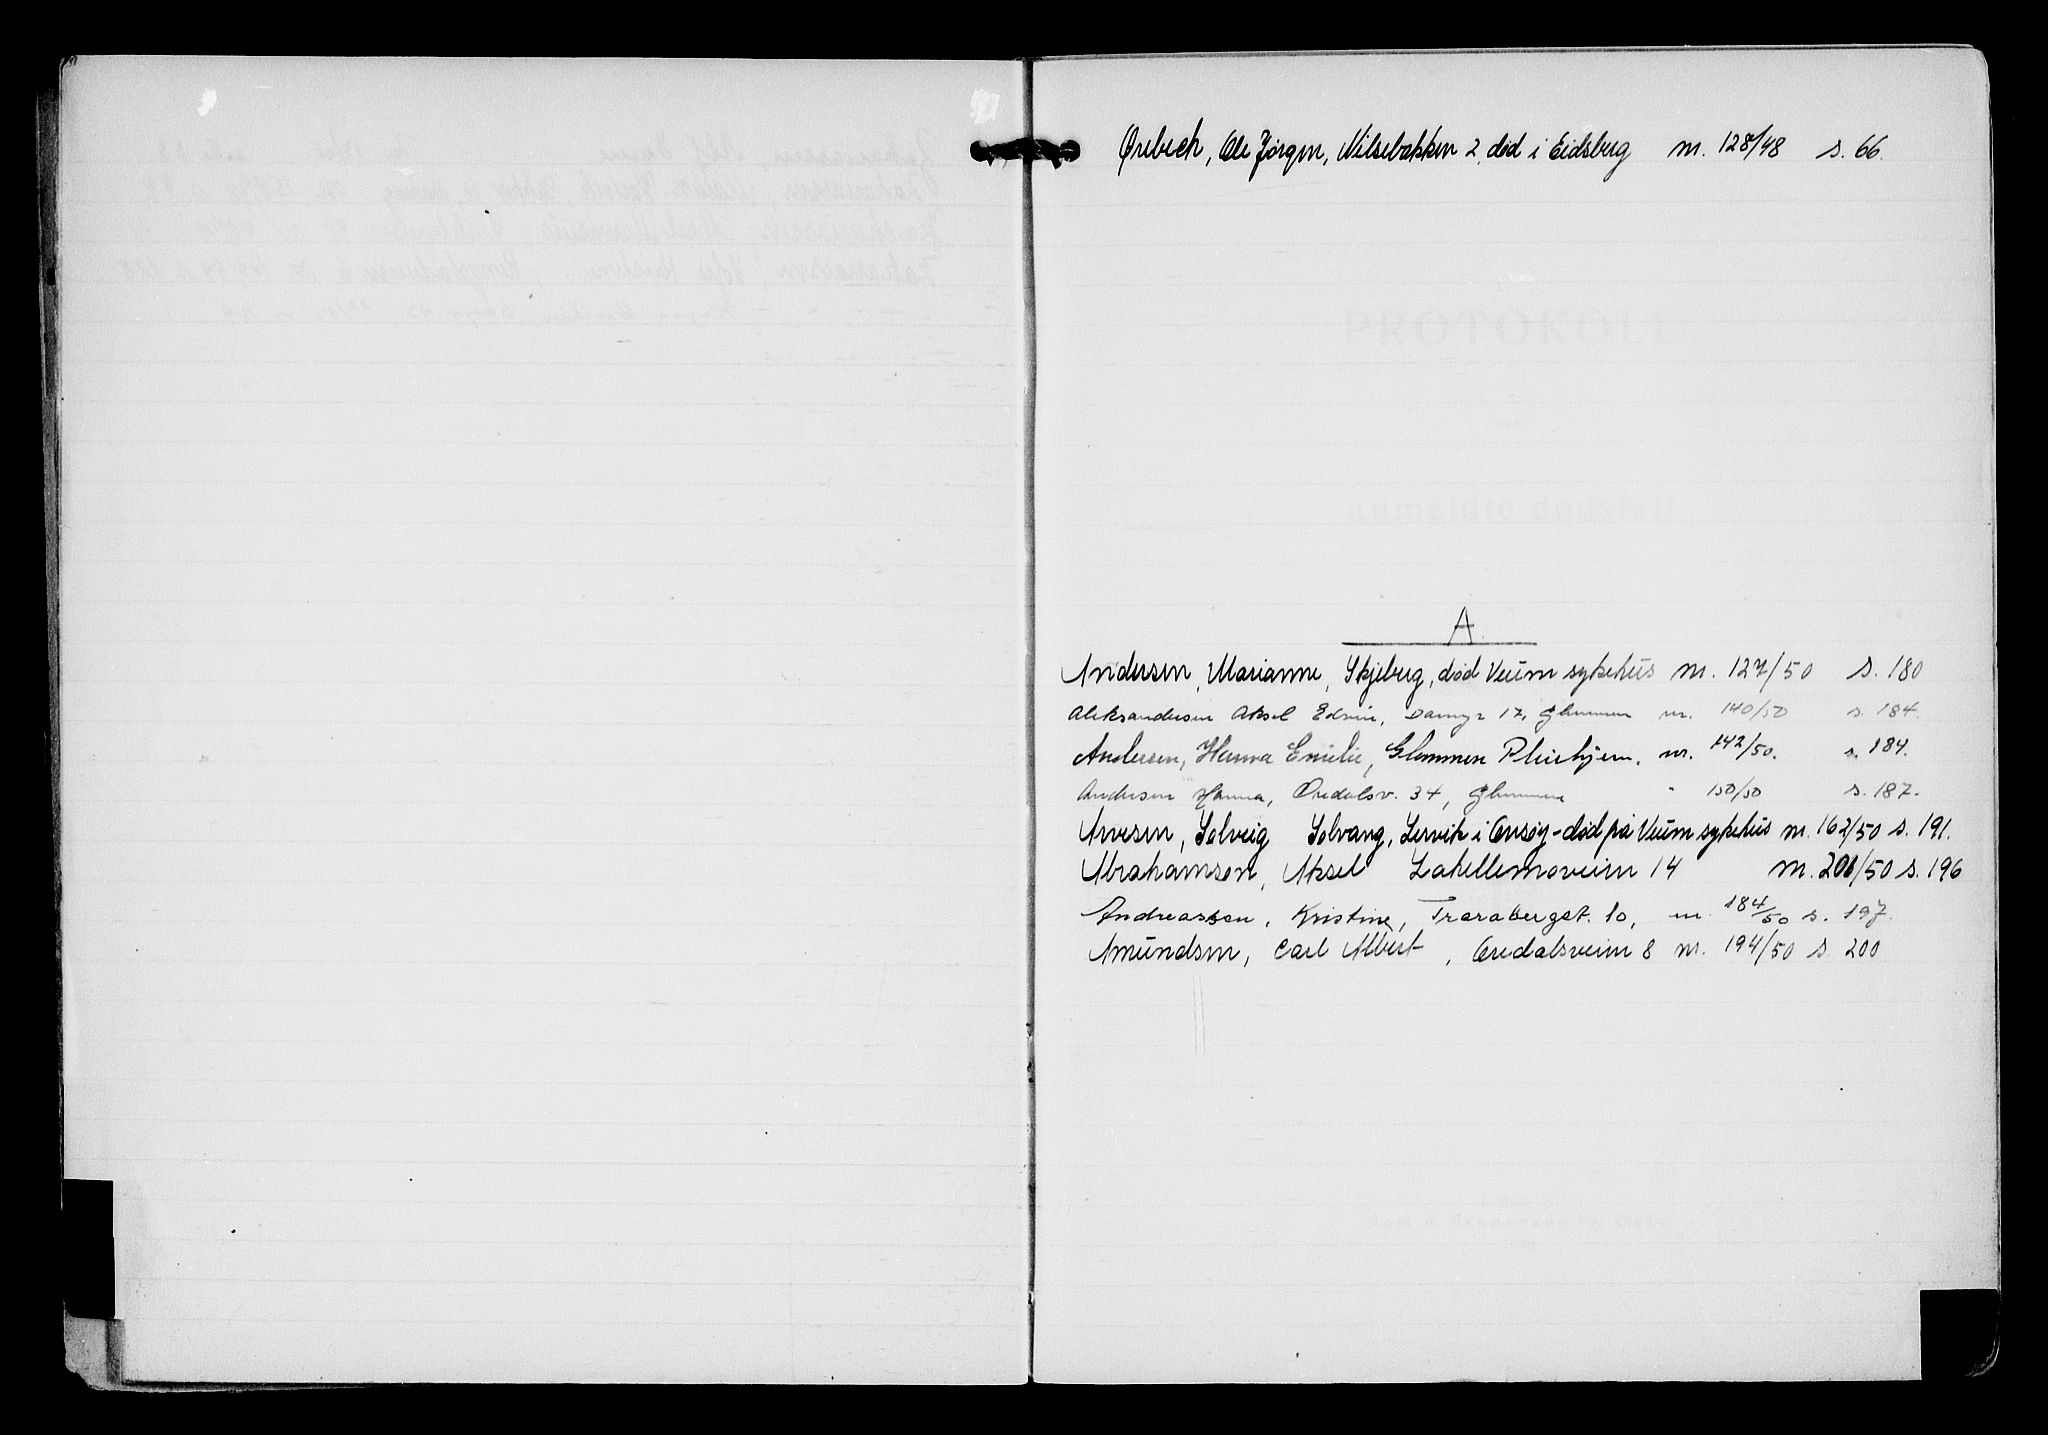 Ørebech, Ole Jörgen, Nilsebakken 2, død i Eidsberg nr. 128/48 s. 66.
A.
Andersen, Marianne, Skjeberg, død Veum sykehus nr. 127/50 s. 180
Aleksandersen Aksel Edvin, Damyr 17, Glemmen nr. 140/50 s. 184
Andersen, Hanna Emilie, Glemmen Pleiehjem. nr. 142/50. s. 184.
Andersen Hanna, Oredalsv. 34, Glemmen " 150/50 s. 187.
Arvesen, Solveig Solvang, Lervik i Onsøy - død på Veum sykehus nr. 162/50 s. 191.
Abrahamsen, Aksel Zakellemoveien 14 nr. 201/50 s. 196
Andreassen, Kristine, Traraberget. 10, nr. 184/50 s. 197.
Amundsen, Carl Albert, Oredalsveien 8 nr. 194/50 s. 200
PROTOKOLL
anmeldte dødsfall